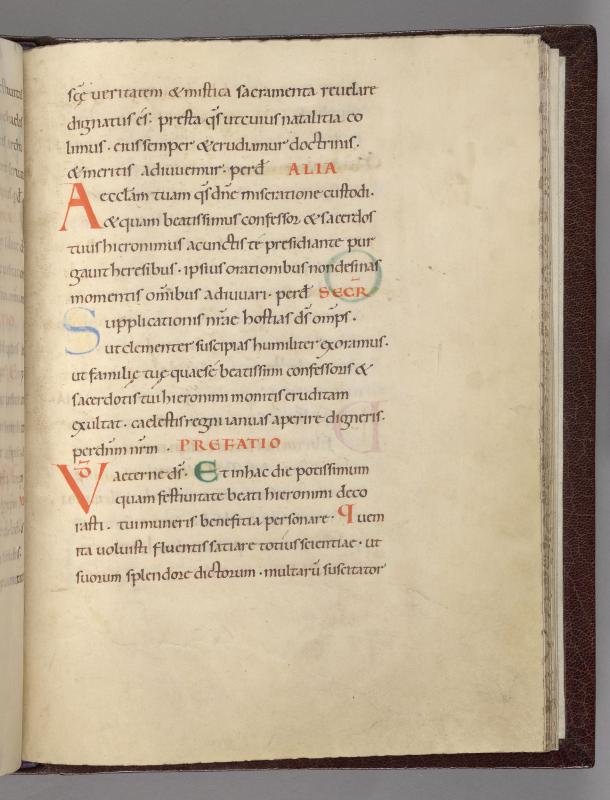 scę ueritatem & mistica sacramenta reuelare
dignatus es: presta qs ut cuius natalitia co
limus. eius semper & erudiamur doctrinis.
& meritis adiuuemur. perd ALIA
Aecclam tuam qs dne miseratione custodi.
& quam beatissimus confessor & sacerdos
tuus hieronimus a cunctis te presidiante pur
gauit heresibus. ipsius orationibus non desinas
momentis omibus adiuuari. perd SECR
Supplicationis nrae hostias ds omps.
ut clementer suscipias humiliter exoramus.
ut familię tuę quaese beatissimi confessoris &
sacerdotis tui hieronimi monitis eruditam
exultat. caelestis regni ianuas aperire digneris.
perdnm nrm. PREFATIO
VD aeterne ds. Et in hac die potissimum
quam festiuitate beati hieronimi deco
rasti. tui muneris benefitia personare. Quem
ita uoluisti fluentis satiare totius scientiae. ut
suorum splendore dictorum. multarū suscitator